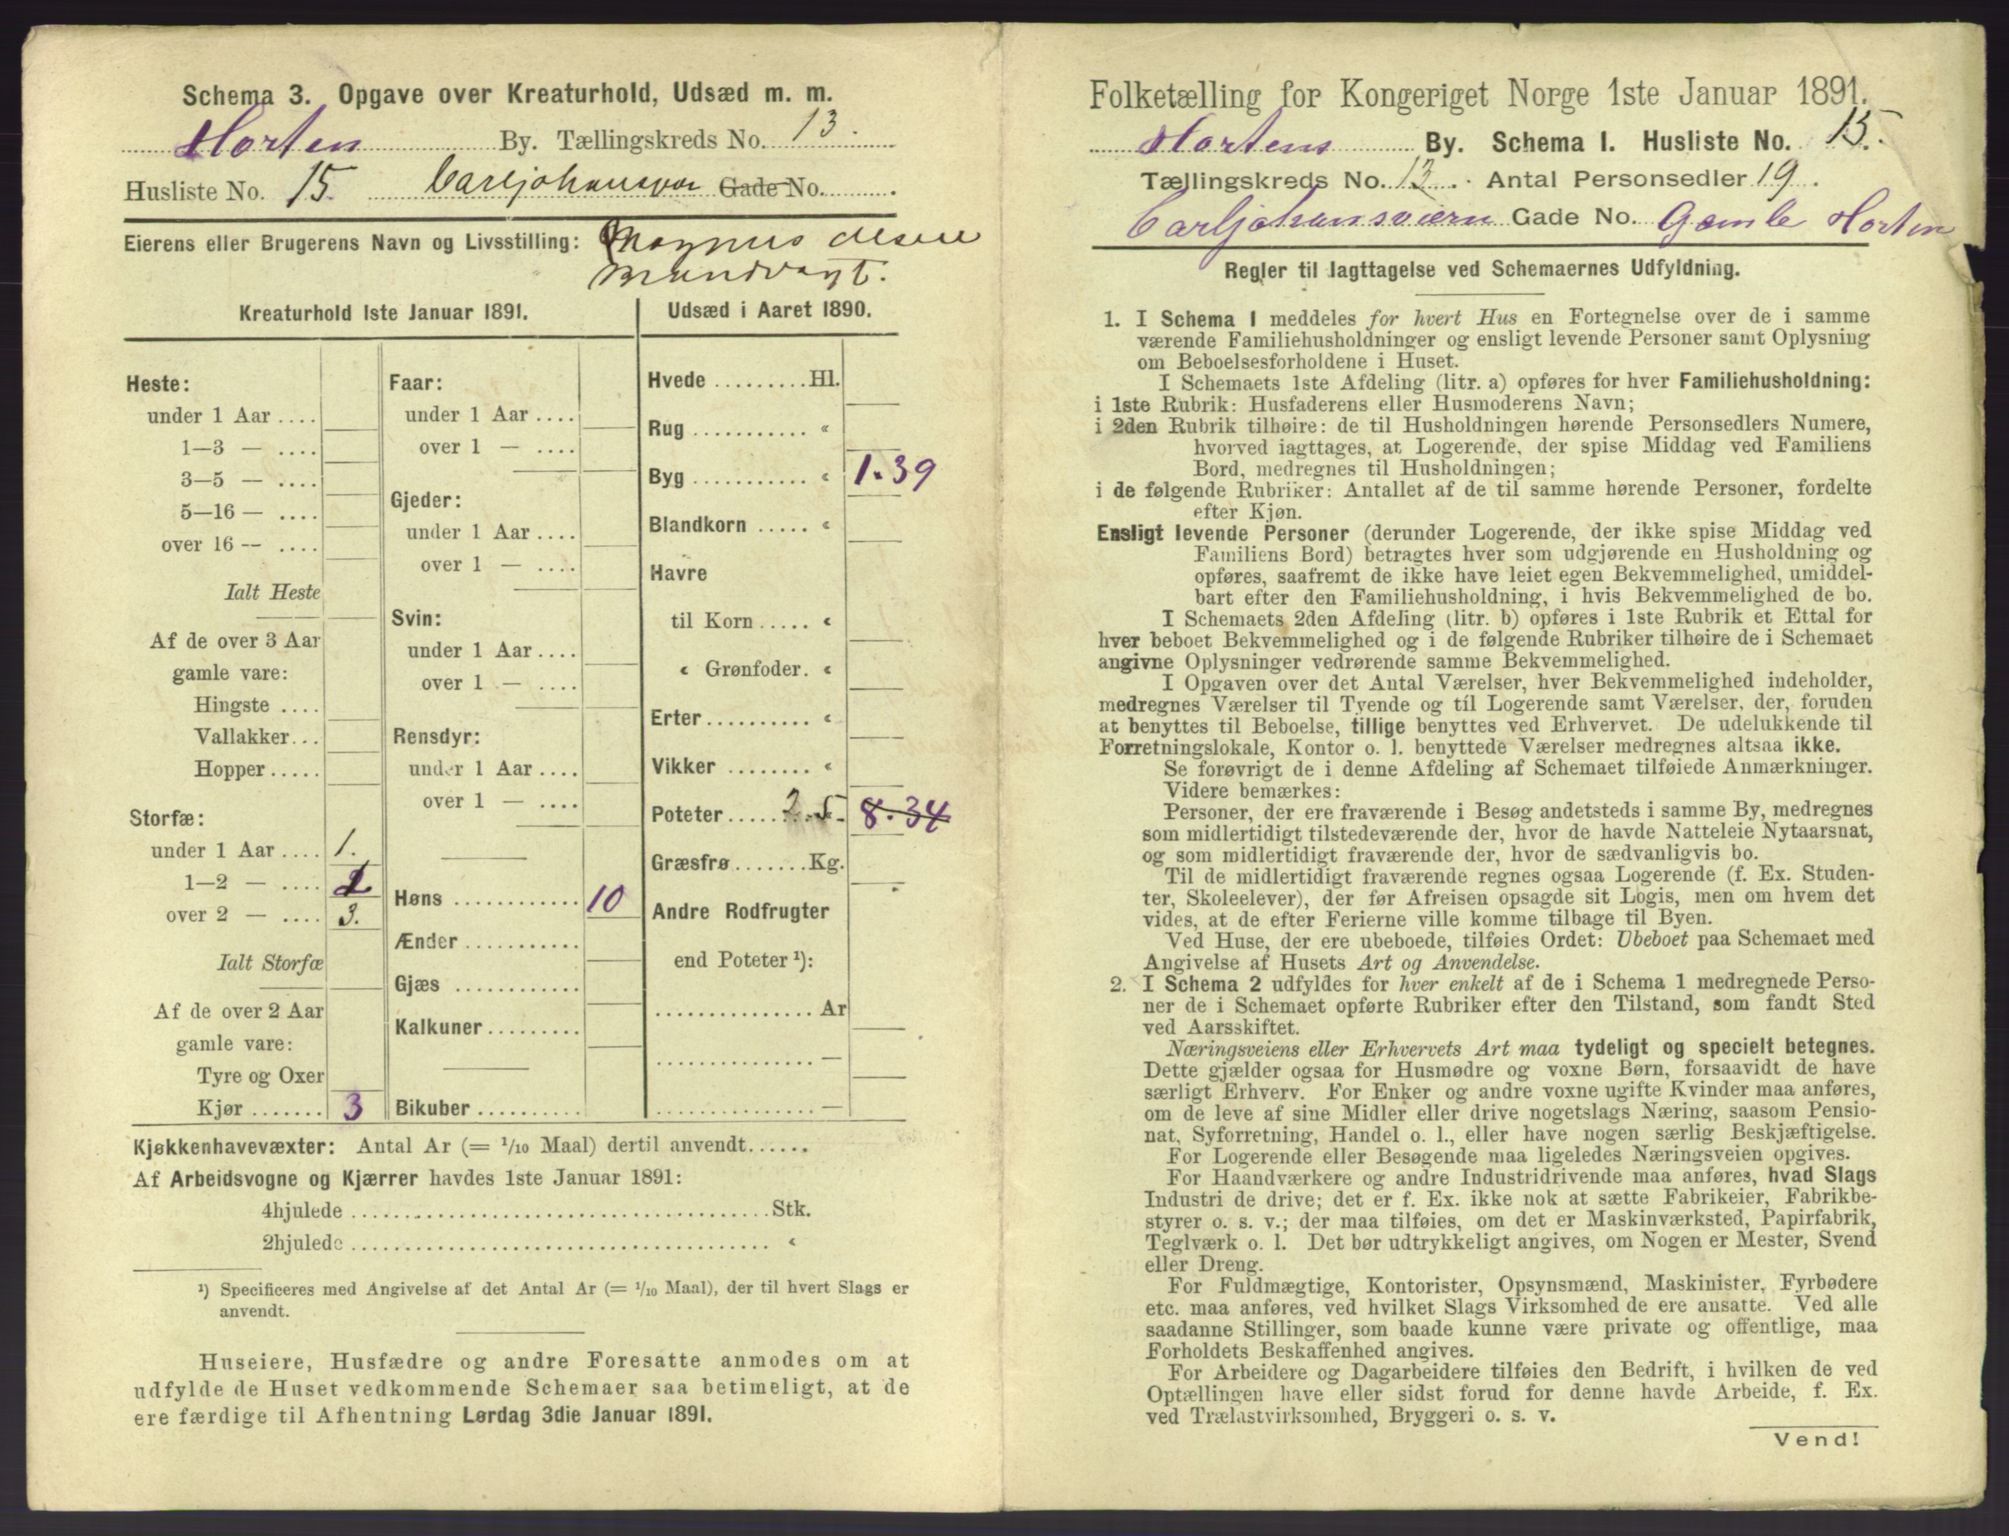 Schema 3. Opgave over Kreaturhold, Udsæd m. m.
Horten By. Tællingskreds No. 13.
Husliste No. 15. Carljohansvær Gade No.
Eierens eller Brugerens Navn og Livsstilling: Magnus Olsen
Mundvagt.
Kreaturhold 1ste Januar 1891.
Heste:
under 1 Aar ....
1—3 — ....
3—5 — ....
5—16 — ....
over 16 — ....
Ialt Heste
Af de over 3 Aar
gamle vare:
Hingste ....
Vallakker...
Hopper.....
Storfæ:
under 1 Aar .... 1.
1—2 — ....
over 2 — .... 3.
Ialt Storfæ
Af de over 2 Aar
gamle vare:
Tyre og Oxer
Kjør ....... 3
Faar:
under 1 Aar ....
over 1 — ....
Gjeder:
under 1 Aar....
over 1 — ....
Svin:
under 1 Aar....
over 1 — ....
Rensdyr:
under 1 Aar....
over 1 — ....
Høns ............ 10
Ænder...........
Gjæs ............
Kalkuner.........
Bikuber..........
Udsæd i Aaret 1890.
Hvede .........Hl.
Rug ........... «
Byg ........... « 1.39
Blandkorn ..... «
Havre
til Korn..... «
« Grønfoder. «
Erter.......... «
Vikker ........ «
Poteter...... 2.5. 8.34
Græsfrø.......Kg.
Andre Rodfrugter
end Poteter ¹):
...............Ar
...............—
...............—
Kjøkkenhavevæxter: Antal Ar (= 1/10 Maal) dertil anvendt......
Af Arbeidsvogne og Kjærrer havdes 1ste Januar 1891:
4hjulede ........................................Stk.
2hjulede ........................................ «
¹) Specificeres med Angivelse af det Antal Ar (= 1/10 Maal), der til hvert Slags er
anvendt.
Huseiere, Husfædre og andre Foresatte anmodes om at
udfylde de Huset vedkommende Schemaer saa betimeligt, at de
ere færdige til Afhentning Lørdag 3die Januar 1891.
Folketælling for Kongeriget Norge 1ste Januar 1891.
Hortens By. Schema I. Husliste No. 15.
Tællingskreds No. 13. Antal Personsedler 19.
Carljohansværn Gade No. Gamle Horten
Regler til Iagttagelse ved Schemaernes Udfyldning.
1. I Schema I meddeles for hvert Hus en Fortegnelse over de i samme
værende Familiehusholdninger og ensligt levende Personer samt Oplysning
om Beboelsesforholdene i Huset.
I Schemaets 1ste Afdeling (litr. a) opføres for hver Familiehusholdning:
i 1ste Rubrik: Husfaderens eller Husmoderens Navn;
i 2den Rubrik tilhøire: de til Husholdningen hørende Personsedlers Numere,
hvorved iagttages, at Logerende, der spise Middag ved Familiens
Bord, medregnes til Husholdningen;
i de følgende Rubriker: Antallet af de til samme hørende Personer, fordelte
efter Kjøn.
Ensligt levende Personer (derunder Logerende, der ikke spise Middag ved
Familiens Bord) betragtes hver som udgjørende en Husholdning og
opføres, saafremt de ikke have leiet egen Bekvemmelighed, umiddel-
bart efter den Familiehusholdning, i hvis Bekvemmelighed de bo.
I Schemaets 2den Afdeling (litr. b) opføres i 1ste Rubrik et Ettal for
hver beboet Bekvemmelighed og i de følgende Rubriker tilhøire de i Schemaet
angivne Oplysninger vedrørende samme Bekvemmelighed.
I Opgaven over det Antal Værelser, hver Bekvemmelighed indeholder,
medregnes Værelser til Tyende og til Logerende samt Værelser, der, foruden
at benyttes til Beboelse, tillige benyttes ved Erhvervet. De udelukkende til
Forretningslokale, Kontor o. l. benyttede Værelser medregnes altsaa ikke.
Se forøvrigt de i denne Afdeling af Schemaet tilføiede Anmærkninger.
Videre bemærkes:
Personer, der ere fraværende i Besøg andetsteds i samme By, medregnes
som midlertidigt tilstedeværende der, hvor de havde Natteleie Nytaarsnat,
og som midlertidigt fraværende der, hvor de sædvanligvis bo.
Til de midlertidigt fraværende regnes ogsaa Logerende (f. Ex. Studen-
ter, Skoleelever), der før Afreisen opsagde sit Logis, men om hvem det
vides, at de efter Ferierne ville komme tilbage til Byen.
Ved Huse, der ere ubeboede, tilføies Ordet: Ubeboet paa Schemaet med
Angivelse af Husets Art og Anvendelse.
2. I Schema 2 udfyldes for hver enkelt af de i Schema 1 medregnede Perso-
ner de i Schemaet opførte Rubriker efter den Tilstand, som fandt Sted
ved Aarsskiftet.
Næringsveiens eller Erhvervets Art maa tydeligt og specielt betegnes.
Dette gjælder ogsaa for Husmødre og voxne Børn, forsaavidt de have
særligt Erhverv. For Enker og andre voxne ugifte Kvinder maa anføres,
om de leve af sine Midler eller drive nogetslags Næring, saasom Pensio-
nat, Syforretning, Handel o. l., eller have nogen særlig Beskjæftigelse.
For Logerende eller Besøgende maa ligeledes Næringsveien opgives.
For Haandværkere og andre Industridrivende maa anføres, hvad Slags
Industri de drive; det er f. Ex. ikke nok at sætte Fabrikeier, Fabrikbe-
styrer o. s. v.; der maa tilføies, om det er Maskinværksted, Papirfabrik,
Teglværk o. l. Det bør udtrykkeligt angives, om Nogen er Mester, Svend
eller Dreng.
For Fuldmægtige, Kontorister, Opsynsmænd, Maskinister, Fyrbødere
etc. maa anføres, ved hvilket Slags Virksomhed de ere ansatte. Ved alle
saadanne Stillinger, som baade kunne være private og offentlige, maa
Forholdets Beskaffenhed angives.
For Arbeidere og Dagarbeidere tilføies den Bedrift, i hvilken de ved
Optællingen have eller sidst forud for denne havde Arbeide, f. Ex.
ved Trælastvirksomhed, Bryggeri o. s. v.
Vend!